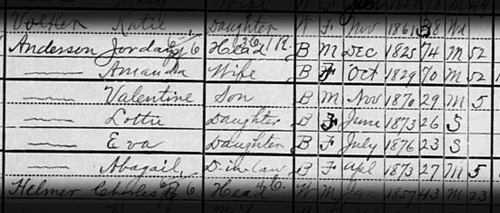 Katie Daughter W F Nov 1861 38 Wd
Anderson Jordan Head B M Dec 1825 74 M 52
—— Amanda Wife B F Oct 1829 70 M 52
—— Valentine Son B M Nov 1870 29 M 5
—— Lottie Daughter B F June 1873 26 S
—— Eva Daughter B F July 1876 23 S
—— Abagail D-in-law B F Apl 1873 27 M 5
Helmer Charles Head W M Jun 1857 43 M 23